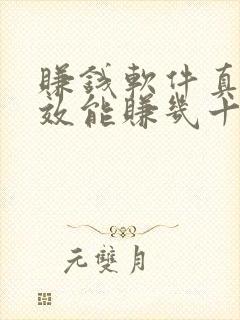 賺錢軟件真
效能賺幾十
元雙月